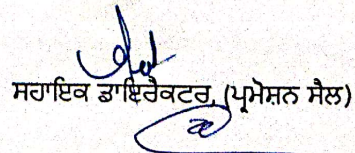 ਸਹਾਇਕ ਡਾਇਰੈਕਟਰ, (ਪ੍ਰਮੋਸ਼ਨ ਸੈਲ)